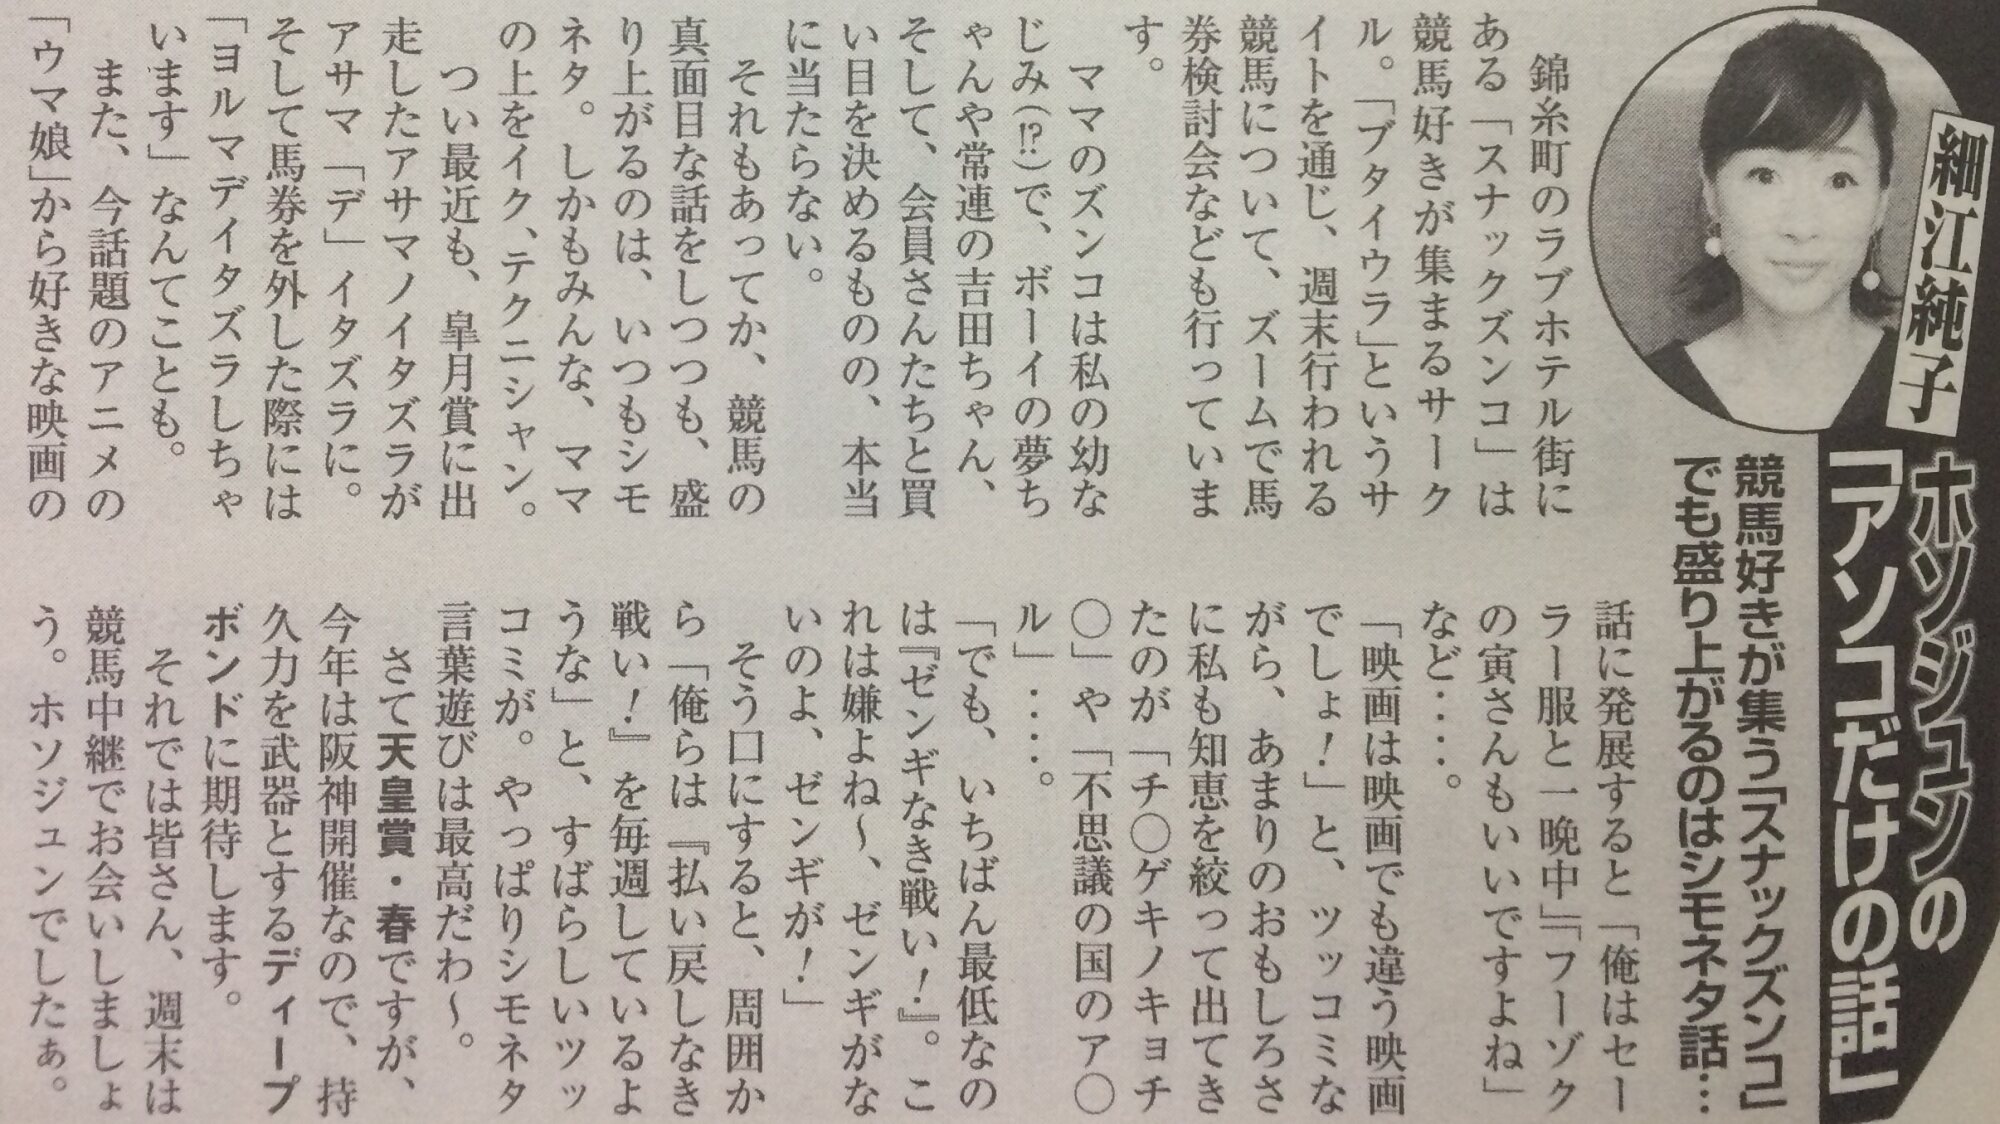 細江純子
ホソジュンの
「アソコだけの話」
競馬好きが集う「スナックズンコ」
でも盛り上がるのはシモネタ話…
錦糸町のラブホテル街に
ある「スナックズンコ」は
競馬好きが集まるサーク
ル。「ブタイウラ」というサ
イトを通じ、週末行われる
競馬について、ズームで馬
券検討会なども行っていま
す。
ママのズンコは私の幼な
じみ(!?)で、ボーイの夢ち
ゃんや常連の吉田ちゃん、
そして、会員さんたちと買
い目を決めるものの、本当
に当たらない。
それもあってか、競馬の
真面目な話をしつつも、盛
り上がるのは、いつもシモ
ネタ。しかもみんな、ママ
の上をイク、テクニシャン。
つい最近も、皐月賞に出
走したアサマノイタズラが
アサマ「デ」イタズラに。
そして馬券を外した際には
「ヨルマデイタズラしちゃ
います」なんてことも。
また、今話題のアニメの
「ウマ娘」から好きな映画の
話に発展すると「『俺はセー
ラー服と一晩中』『フーゾク
の寅さんもいいですよね」
など‥‥。
「映画は映画でも違う映画
でしょ！」と、ツッコミな
がら、あまりのおもしろさ
に私も知恵を絞って出てき
たのが「チ○ゲキノキョチ
○」や「不思議の国のア○
ル」‥‥。
「でも、いちばん最低なの
は『ゼンギなき戦い！』。こ
れは嫌よね～、ゼンギがな
いのよ、ゼンギが！」
そう口にすると、周囲か
ら「俺らは『払い戻しなき
戦い！』を毎週しているよ
うな」と、すばらしいツッ
コミが。やっぱりシモネタ
言葉遊びは最高だわ～。
さて天皇賞・春ですが、
今年は阪神開催なので、持
久力を武器とするディープ
ボンドに期待します。
それでは皆さん、週末は
競馬中継でお会いしましょ
う。ホソジュンでしたぁ。